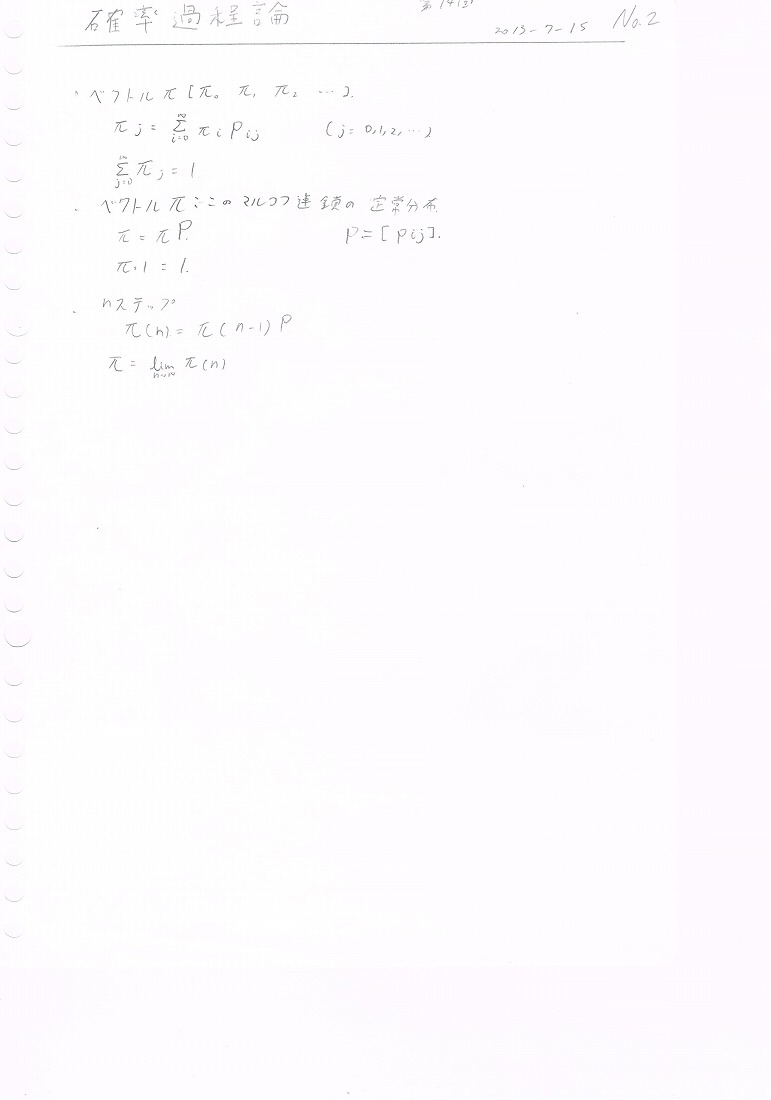 確率過程論 第14回 2013-7-15 No.2
・ベクトルπ [π₀ π₁ π₂ …].
πj = Σ_{i=0}^{∞} πi Pij (j = 0,1,2,…)
Σ_{j=0}^{∞} πj = 1
・ベクトルπ:このマルコフ連鎖の定常分布
π = πP. P = [Pij].
π・1 = 1.
・nステップ
π(n) = π(n-1)P
π = lim_{n→∞} π(n)